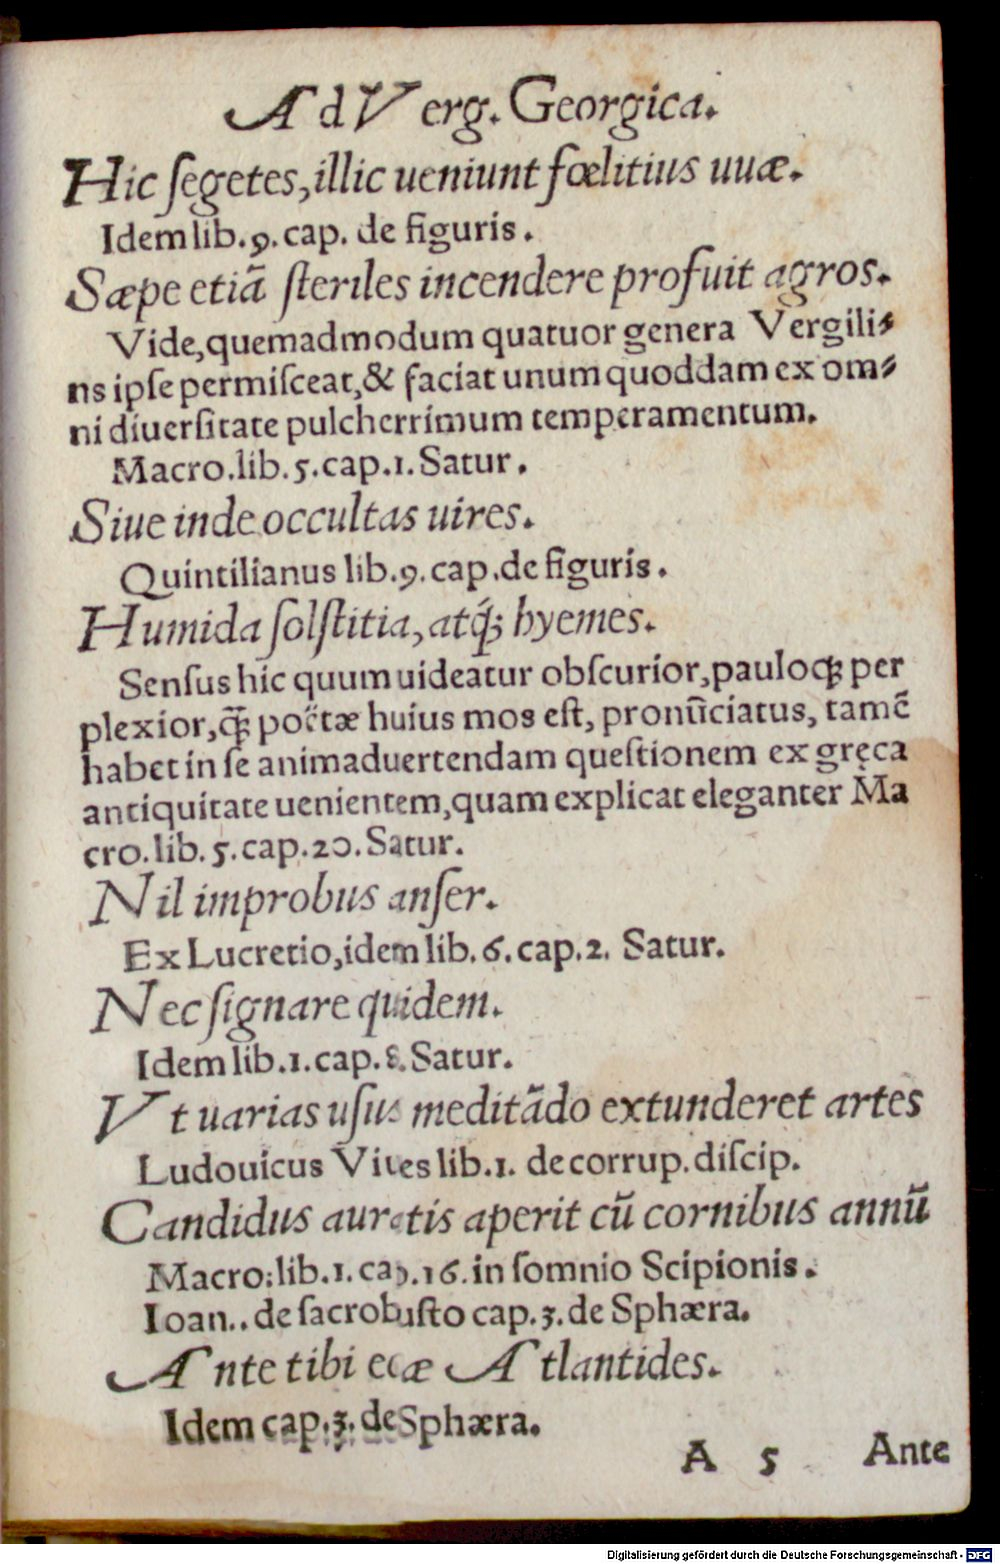 Ad Verg. Georgica.
Hic ſegetes, illic ueniunt fœlitius uuæ.
Idem lib. 9. cap. de figuris.
Sæpe etiã ſteriles incendere profuit agros.
Vide, quemadmodum quatuor genera Vergili⸗
ns ipſe permiſceat, & faciat unum quoddam ex om⸗
ni diuerſitate pulcherrimum temperamentum.
Macro. lib. 5. cap. 1. Satur.
Siue inde occultas uires.
Quintilianus lib. 9. cap. de figuris.
Humida ſolſtitia, atq́; hyemes.
Senſus hic quum uideatur obſcurior, pauloq; per
plexior, q̃; poëtæ huius mos eſt, pronũciatus, tamẽ
habet in ſe animaduertendam queſtionem ex gręca
antiquitate uenientem, quam explicat eleganter Ma
cro. lib. 5. cap. 20. Satur.
Nil improbus anſer.
Ex Lucretio, idem lib. 6. cap. 2. Satur.
Nec ſignare quidem.
Idem lib. 1. cap. 8. Satur.
Vt uarias uſus meditãdo extunderet artes
Ludouicus Viues lib. 1. de corrup. diſcip.
Candidus auratis aperit cũ cornibus annũ
Macro: lib. 1. cap. 16. in ſomnio Scipionis.
Ioan.. de ſacrobuſto cap. 3. de Sphæra.
Ante tibi eoæ Atlantides.
Idem cap. 3. de Sphæra.
A 5 Ante
Digitalisierung gefördert durch die Deutsche Forschungsgemeinschaft - DFG